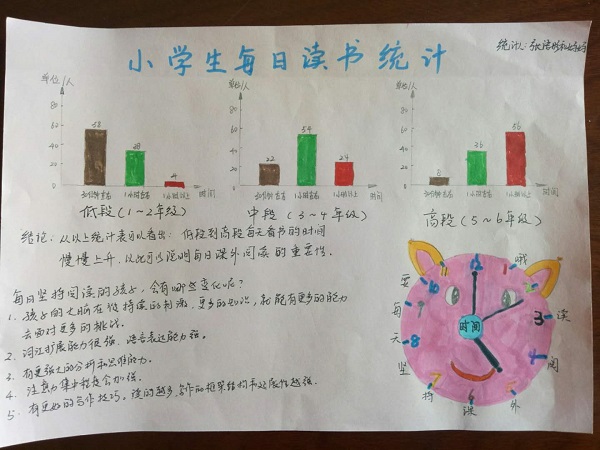 小学生每日读书统计
统计人：张
单位/人
80
60
40
20
0
58
38
4
30分钟左右
1小时左右
1小时以上
时间
低段（1～2年级）
单位/人
80
60
40
20
0
22
54
24
30分钟左右
1小时左右
1小时以上
时间
中段（3～4年级）
单位/人
80
60
40
20
0
8
36
56
30分钟左右
1小时左右
1小时以上
时间
高段（5～6年级）
结论：从以上统计表可以看出：低段到高段每天看书的时间
慢慢上升，从此可以说明每日课外阅读的重要性。
每日坚持阅读的孩子，会有哪些变化呢？
1. 孩子的大脑在做持续的刺激，更多的知识，就能有更多的能力
去面对更多的挑战。
2. 词汇扩展能力很强，语言表达能力强。
3. 有更强大的分析和思维能力。
4. 注意力集中程度会加强。
5. 有更好的写作技巧。读的越多，写作的框架结构和发展性越强。
要每天坚持课外阅读哦
12
1
3
4
5
7
8
9
10
时间